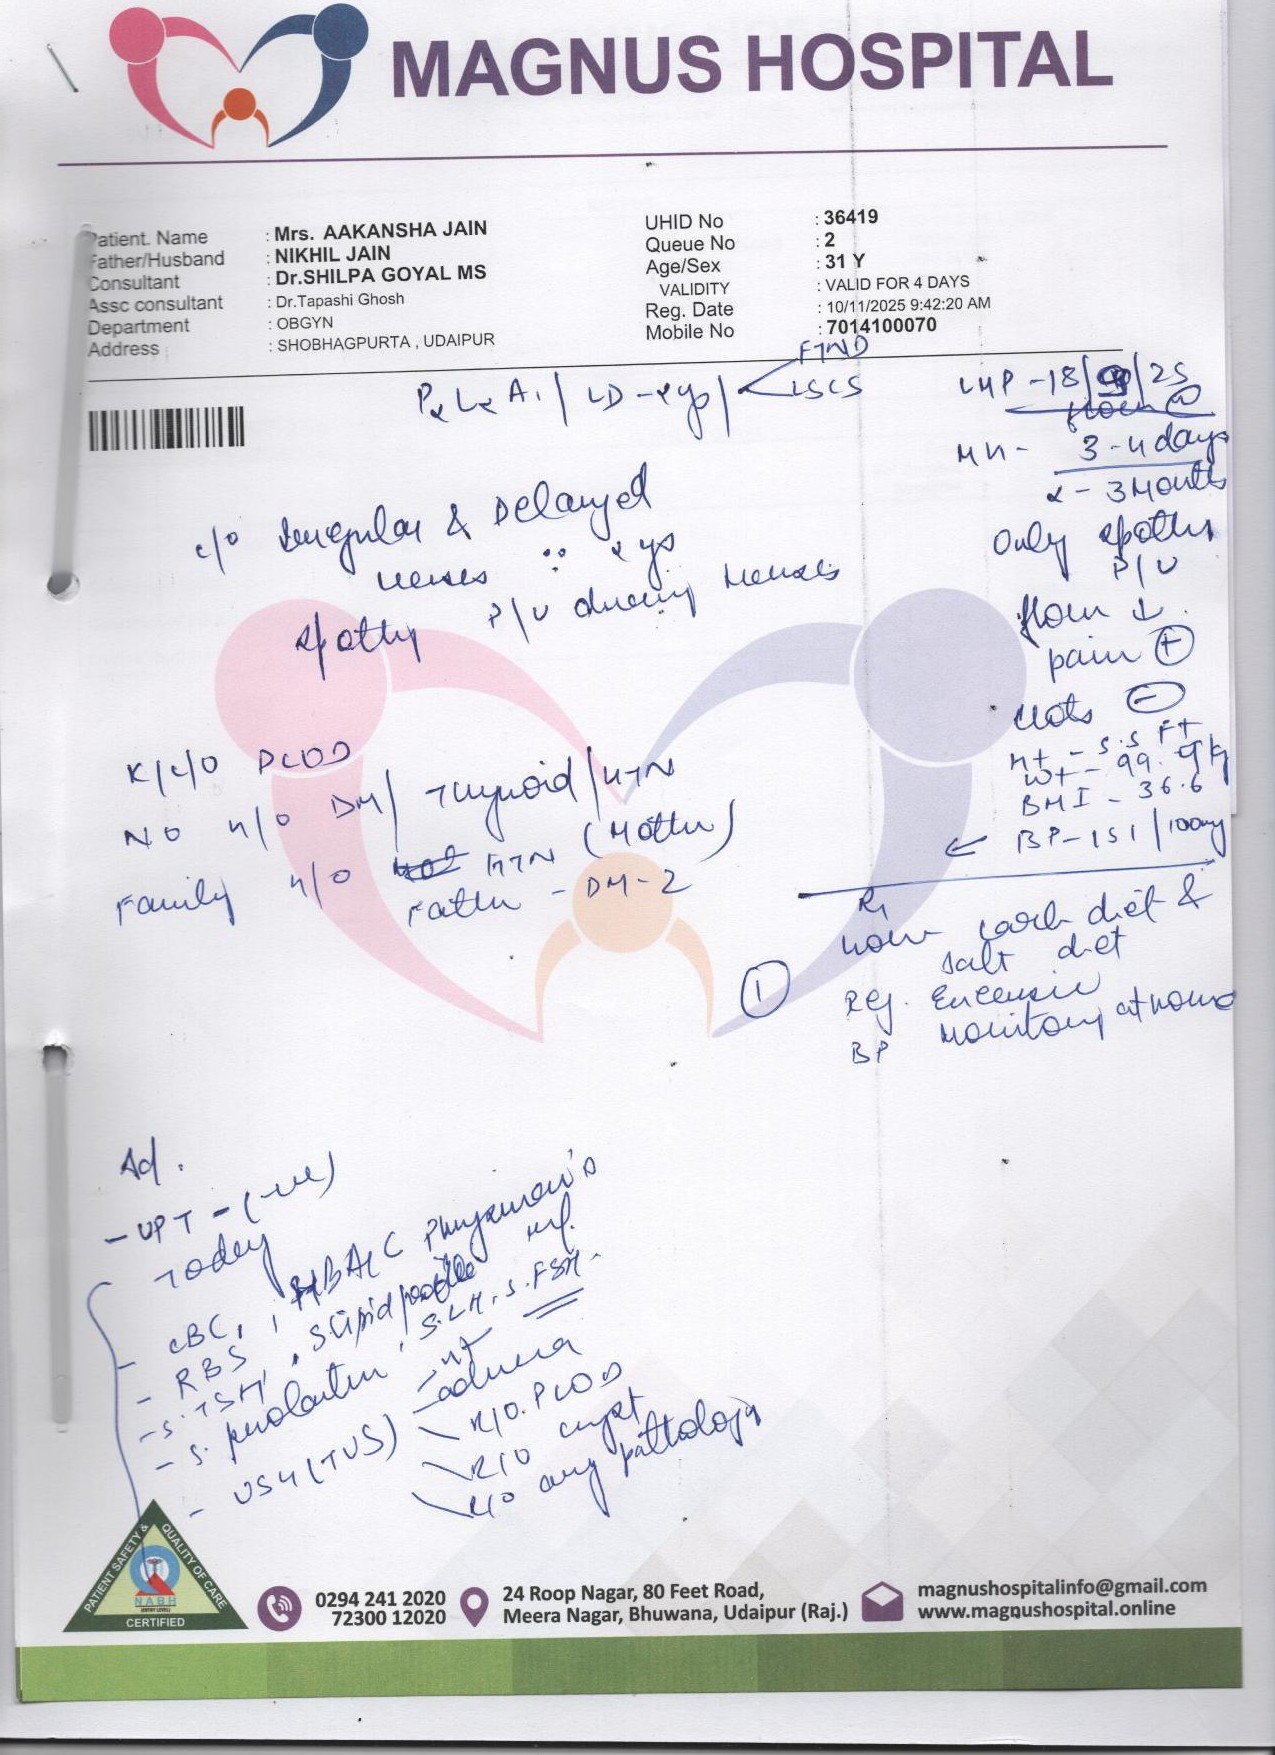 MAGNUS HOSPITAL
Patient. Name : Mrs. AAKANSHA JAIN
Father/Husband : NIKHIL JAIN
Consultant : Dr.SHILPA GOYAL MS
Assc consultant : Dr.Tapashi Ghosh
Department : OBGYN
Address : SHOBHAGPURTA , UDAIPUR
UHID No : 36419
Queue No : 2
Age/Sex : 31 Y
VALIDITY : VALID FOR 4 DAYS
Reg. Date : 10/11/2025 9:42:20 AM
Mobile No : 7014100070
FTND
P2 L2 A1 / LD - 2 ys / LSCS
c/o Irregular & Delayed
menses 2 ys
spotty P/V during menses
K/C/O PCOD
NO H/O DM / Thyroid / HTN
Family H/O HTN (Mother)
Father - DM-2
LMP - 18/ /25
flow
MH - 3-4 days
2 - 3 Months
Only
P/V
flow ↓
pain +
clots -
Ht - 5.5 FT
Wt - 99. kg
BMI - 36.6
BP - 151/100
Rx
low carb diet &
salt diet
Reg. Exercise
BP Monitory at home
1
Ad.
- UPT - (-ve)
Today
- CBC, HBA1C Physician's ref.
- RBS, S. Lipid profile
- S. TSH, S. LH, S. FSH.
- S. prolactin
- USG (TVS) - adnexa
R/O. PCOD
R/O cyst
R/O any pathology
PATIENT SAFETY & QUALITY OF CARE
NABH
CERTIFIED
0294 241 2020
72300 12020
24 Roop Nagar, 80 Feet Road,
Meera Nagar, Bhuwana, Udaipur (Raj.)
magnushospitalinfo@gmail.com
www.magnushospital.online